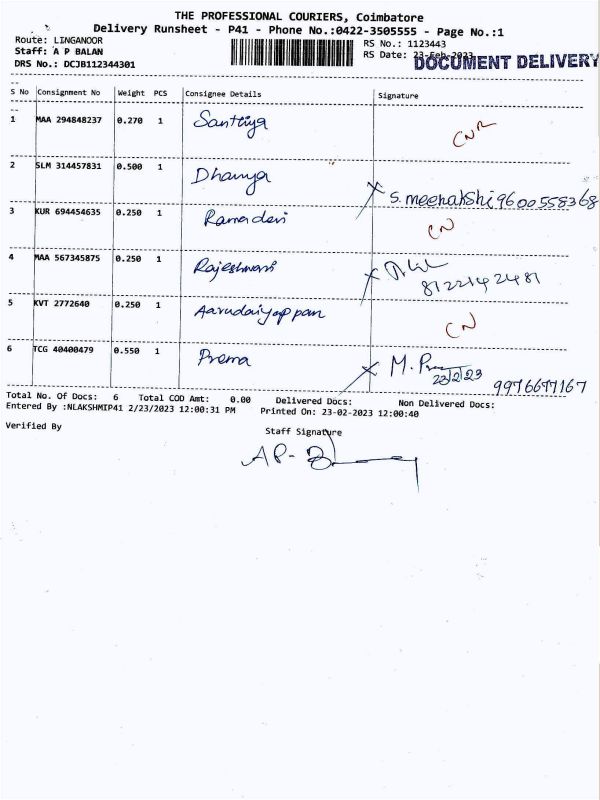 THE PROFESSIONAL COURIERS, Coimbatore
Delivery Runsheet - P41 - Phone No.:0422-3505555 - Page No.:1
Route: LINGANOOR
RS No.: 1123443
Staff: A P BALAN
RS Date: 23-Feb-2023
DOCUMENT DELIVERY
DRS No.: DCJB112344301
S No Consignment No Weight PCS Consignee Details Signature
1 MAA 294848237 0.270 1 Santhya CNR
2 SLM 314457831 0.500 1 Dhanya S. meenakshi 9600558368
3 KUR 694454635 0.250 1 Ramadevi CN
4 MAA 567345875 0.250 1 Rajeshwari 8122142481
5 KVT 2772640 0.250 1 Aavudaiyappan CN
6 TCG 40400479 0.550 1 Prema M. 23/2/23 9976677167
Total No. Of Docs: 6 Total COD Amt: 0.00 Delivered Docs: Non Delivered Docs:
Entered By :NLAKSHMIP41 2/23/2023 12:00:31 PM Printed On: 23-02-2023 12:00:40
Verified By Staff Signature
AP-